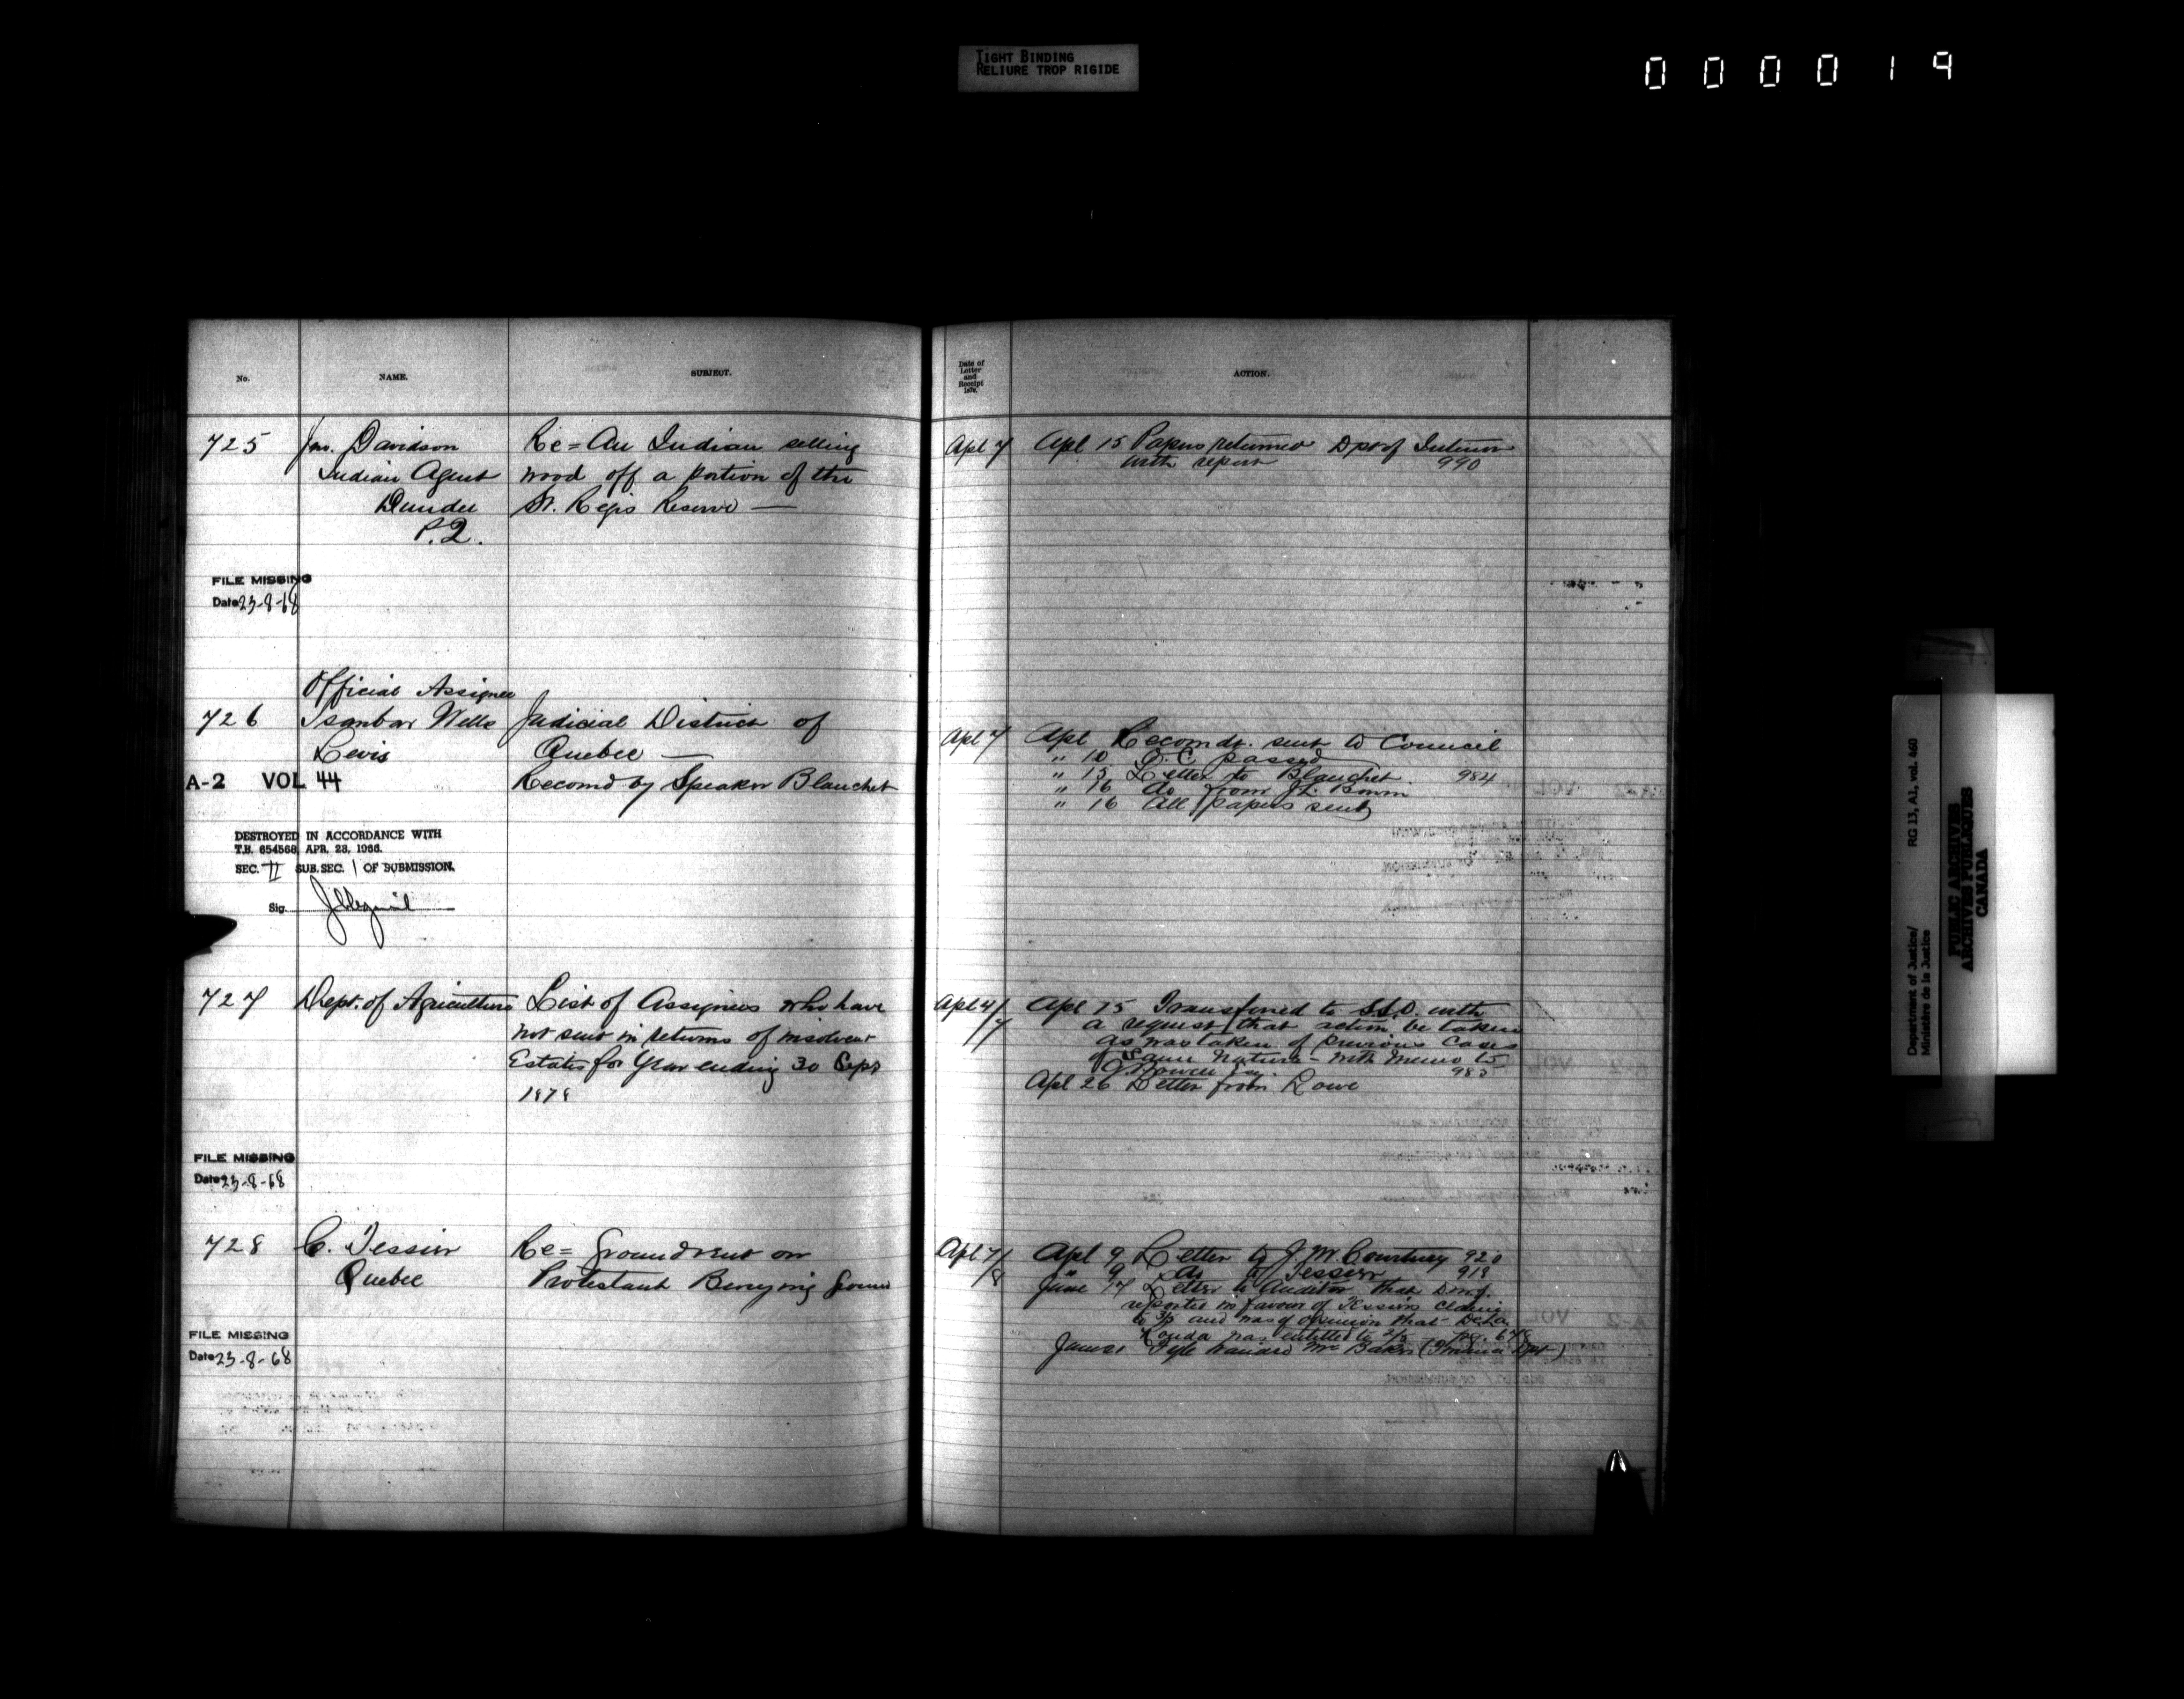 TIGHT BINDING
RELIURE TROP RIGIDE
000019
No.
NAME.
SUBJECT.
725
Jno. Davidson
Indian Agent
Dundee
P.Q.
Re = An Indian selling
wood off a portion of the
St. Regis Reserve —
FILE MISSING
Date 23-8-68
Official Assignee
726
Isanbar Wells
Levis
Judicial District of
Quebec —
Recomd by Speaker Blanchet
A-2 VOL 44
DESTROYED IN ACCORDANCE WITH
T.B. 654568, APR. 28, 1966.
SEC. II SUB. SEC. 1 OF SUBMISSION.
Sig.
727
Dept. of Agriculture
List of Assignees who have
not sent in returns of insolvent
Estates for Year ending 30 Sept
1878
FILE MISSING
Date 23-8-68
728
C. Tessier
Quebec
Re = Ground rent on
Protestant Burying Ground
FILE MISSING
Date 23-8-68
Date of
Letter
and
Receipt
1879.
ACTION.
Apl 7
Apl 15 Papers returned Dpt of Interior
with report 990
Apl 7
Apl Recomdt. sent to Council
" 10 O.C. passed
" 15 Letter to Blanchet 984
" 16 do from J.L.
" 16 All papers sent
Apl 4/7
Apl 15 Transferred to with
a request that action be taken
as was taken of previous Cases
of same nature - with memo to
985
Apl 26 Letter from Lowe
Apl 7/8
Apl 9 Letter to J.M. Courtney 920
" 9 do to Tessier 919
June 17 Letter to Auditor that
reported in favour of Tessiers claim
to and was of opinion that
was entitled to
Mr Baker (Finance Dpt)
Department of Justice/
Ministère de la Justice
RG 13, A1, vol. 460
PUBLIC ARCHIVES
ARCHIVES PUBLIQUES
CANADA